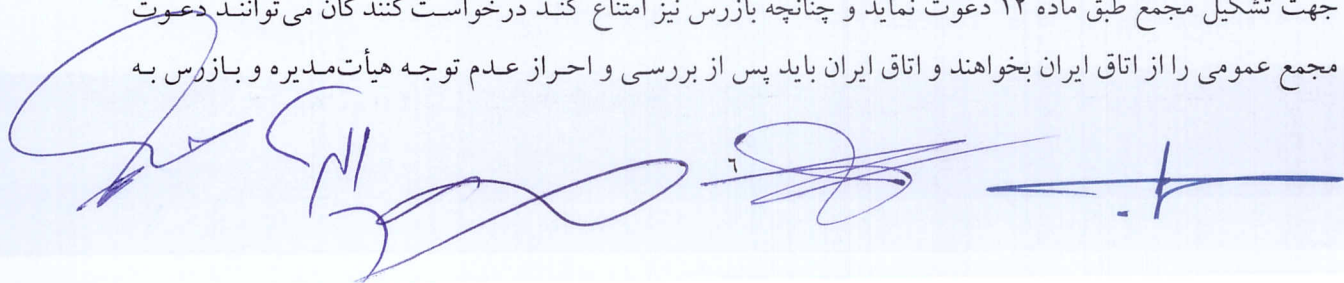 جهت تشکیل مجمع طبق ماده ۱۲ دعوت نماید و چنانچه بازرس نیز امتناع کند درخواست کنندگان می‌توانند دعوت
مجمع عمومی را از اتاق ایران بخواهند و اتاق ایران باید پس از بررسی و احراز عدم توجه هیأت‌مدیره و بازرس به
٦